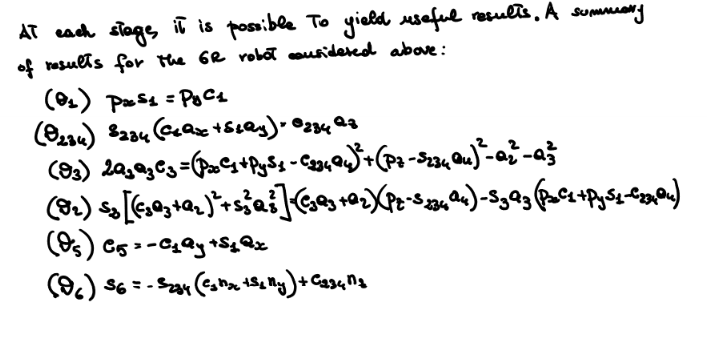 AT each stage, it is possible To yield useful results. A summary
of results for the 6R robot considered above:
(θ₁) pₓs₁ = pyc₁
(θ₂₃₄) s₂₃₄(c₁aₓ+s₁ay) = c₂₃₄a₃
(θ₃) 2a₂a₃c₃ = (pₓc₁+pys₁-c₂₃₄a₄)²+(p_z-s₂₃₄a₄)²-a₂²-a₃²
(θ₂) s₂[(c₃a₃+a₂)²+s₃²a₃²]=(c₃a₃+a₂)(p_z-s₂₃₄a₄)-s₃a₃(pₓc₁+pys₁-c₂₃₄a₄)
(θ₅) c₅ = -c₁ay+s₁aₓ
(θ₆) s₆ = -s₂₃₄(c₁nₓ+s₁ny)+c₂₃₄n₃